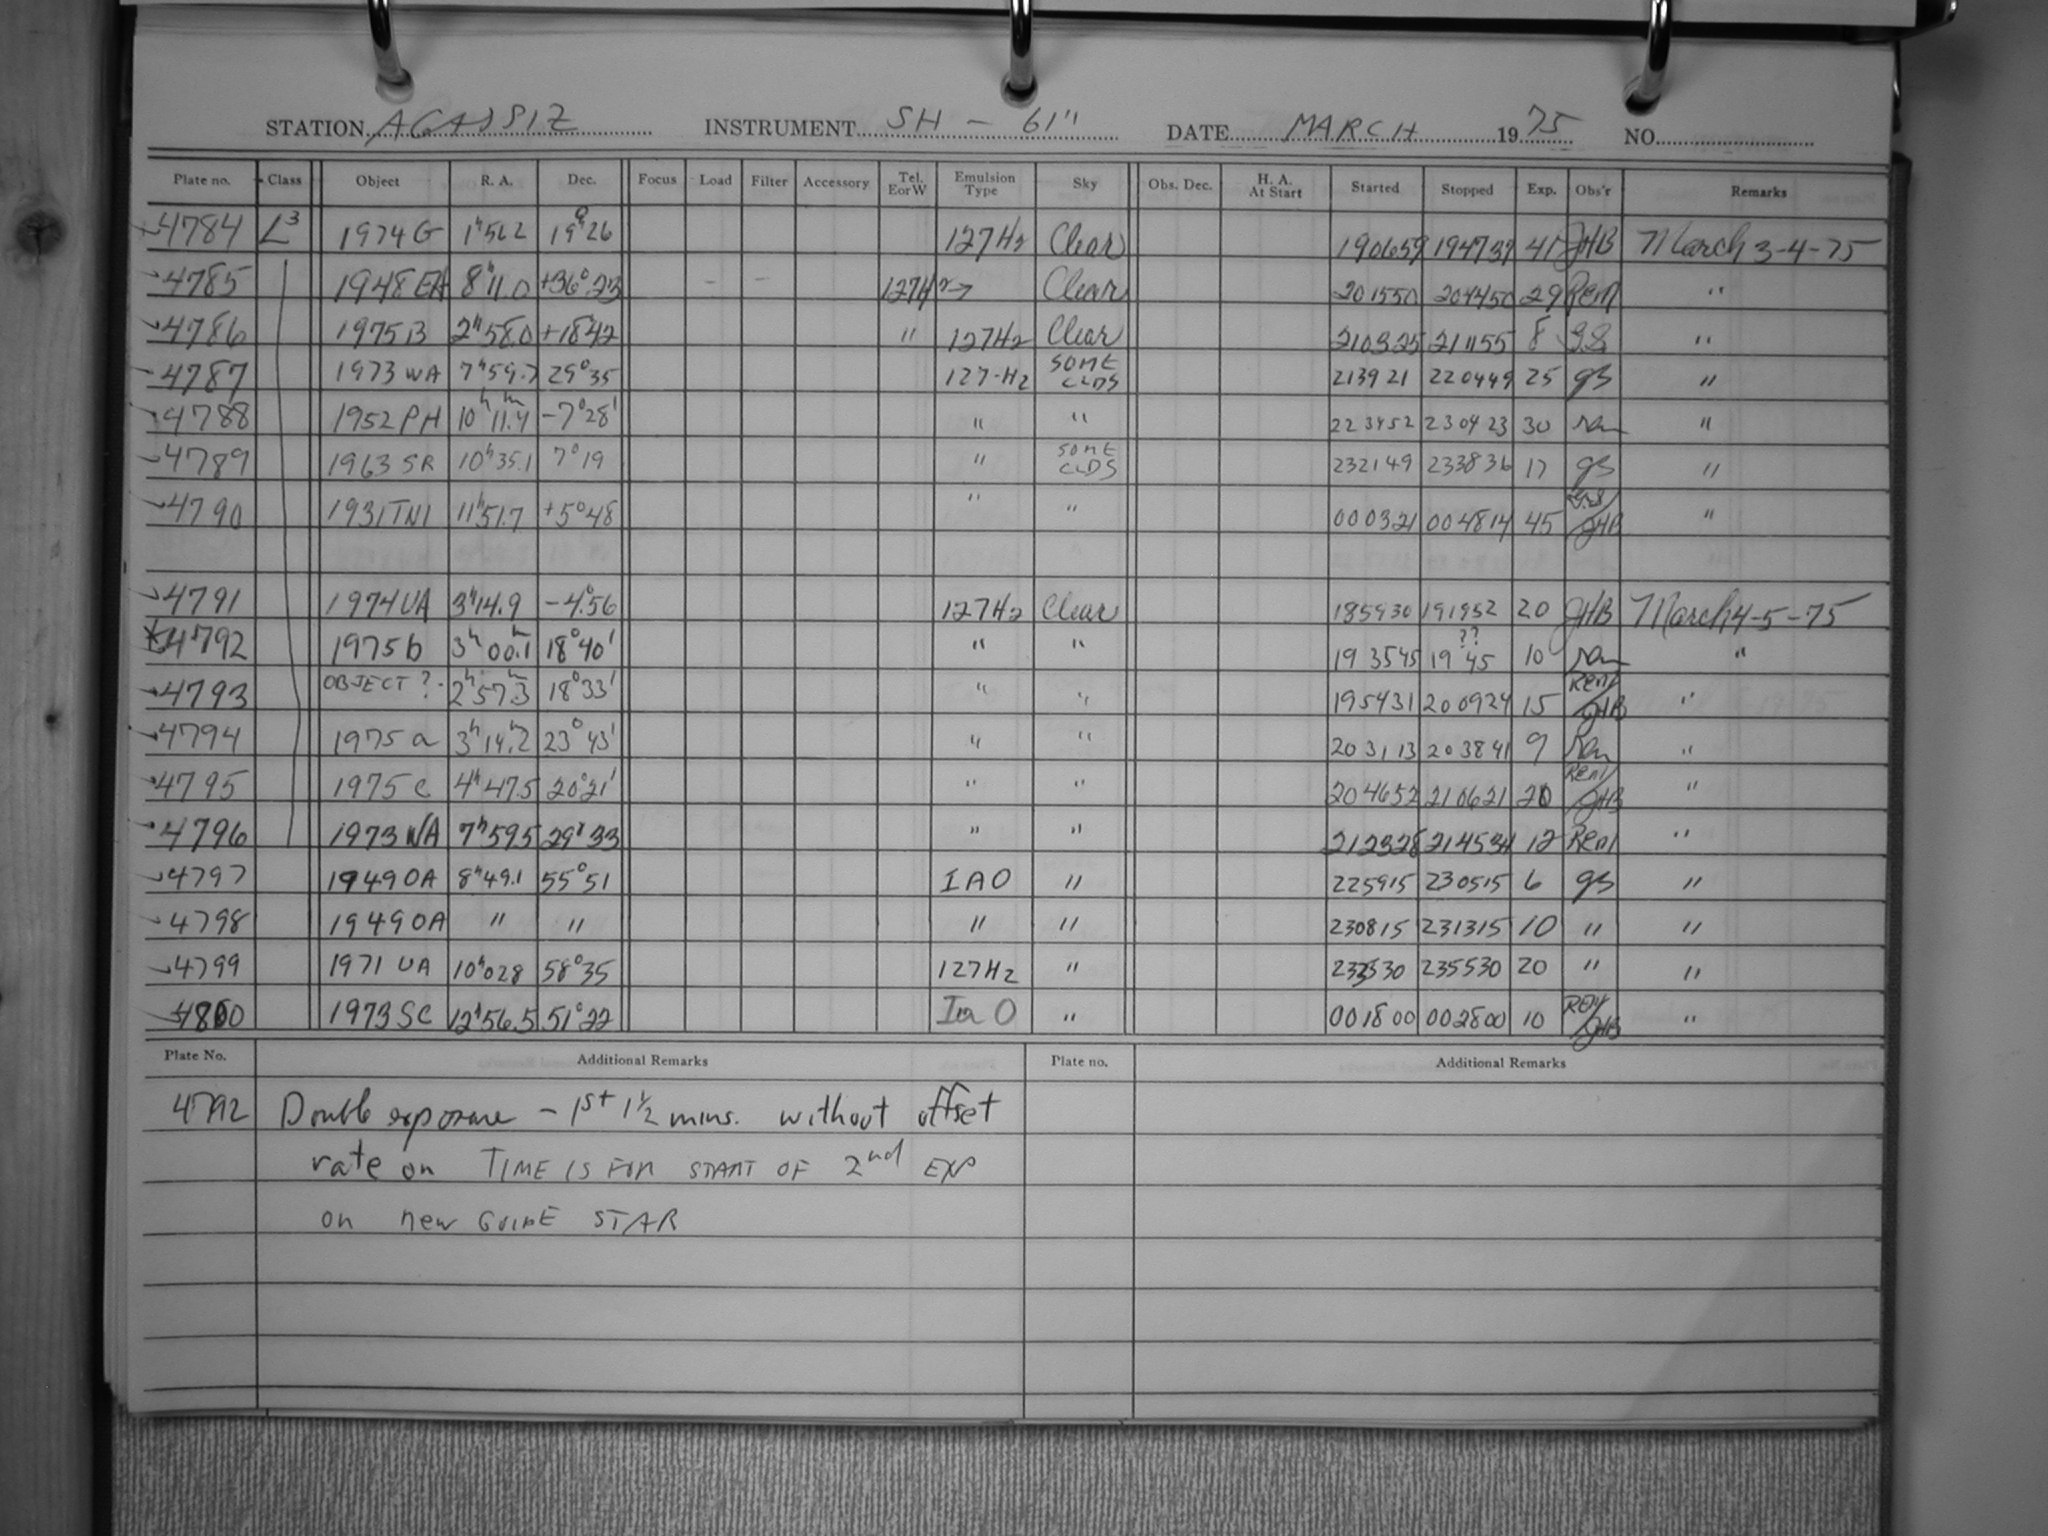 STATION AGASSIZ INSTRUMENT SH - 61" DATE MARCH 1975 NO.
Plate no. Class Object R. A. Dec. Focus Load Filter Accessory Tel. E or W Emulsion Type Sky Obs. Dec. H. A. At Start Started Stopped Exp. Obs'r Remarks
4784 L3 1974 G 1h562 19°26 127H2 Clear 190659 194739 41 JHB March 3-4-75
4785 1948 EA 8h11.0 +36°23 - - 127H2 → Clear 201550 204450 29 REM "
4786 1975 B 2h58.0 +18°42 " 127H2 Clear 210325 211155 8 GS "
4787 1973 WA 7h59.7 29°35 127-H2 SOME CLDS 213921 220449 25 gs "
4788 1952 PH 10h11.4m -7°28' " " 223452 230423 30 rem "
4789 1963 SR 10h35.1 7°19 " SOME CLDS 232149 233836 17 gs "
4790 1931TN1 11h51.7 +5°48 " " 000321 004814 45 /JHB "
4791 1974UA 3h14.9 -4°56 127H2 Clear 185930 191952 20 JHB March 4-5-75
*4792 1975b 3h00.1m 18°40' " " 193545 19??45 10 rem "
4793 OBJECT ? 2h57.3m 18°33' " " 195431 200924 15 REM/JHB "
4794 1975 a 3h14.2m 23°43' " " 203113 203841 9 Rem "
4795 1975 c 4h47.5 20°21' " " 204652 210621 20 REM/JHB "
4796 1973 WA 7h595 29°33 " " 212328 214534 12 REM "
4797 1949 OA 8h49.1 55°51 IAO " 225915 230515 6 gs "
4798 1949 OA " " " " 230815 231315 10 " "
4799 1971 UA 10h028 58°35 127H2 " 233530 235530 20 " "
4800 1973 SC 12h56.5 51°22 IaO " 001800 002800 10 REM/JHB "
Plate No. Additional Remarks Plate no. Additional Remarks
4792 Double exposure - 1st 1½ mins. without offset
rate on TIME IS FOR START OF 2nd EXP
on new GUIDE STAR